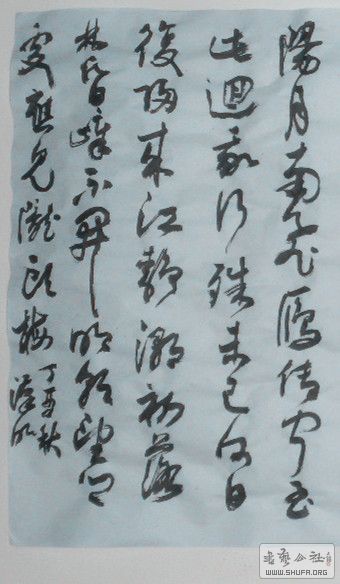 陽月南飛雁傳聞至
此迴我行殊未已何日
復歸來江靜潮初落
林昏瘴不開明朝望鄉
處應見隴頭梅
丁亥秋
書藝公社
WWW.SHUFA.ORG